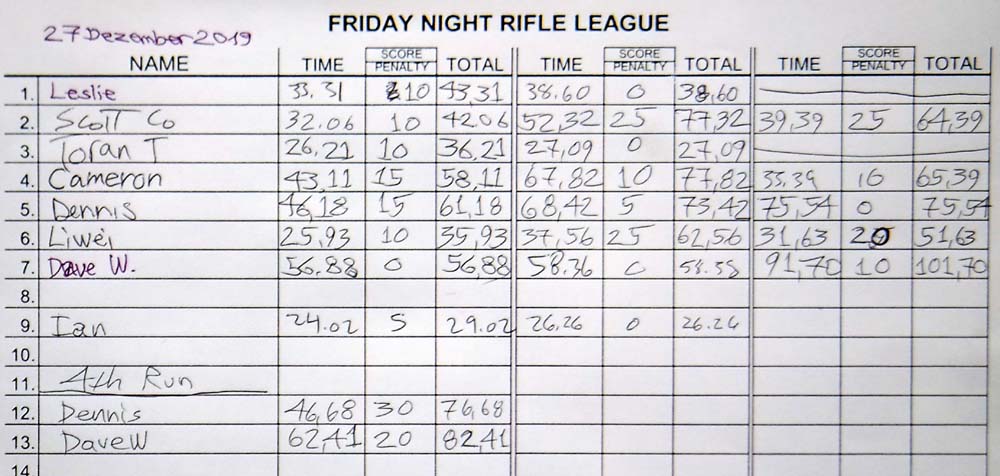 FRIDAY NIGHT RIFLE LEAGUE
27 Dezember 2019
NAME TIME SCORE PENALTY TOTAL TIME SCORE PENALTY TOTAL TIME SCORE PENALTY TOTAL
1. Leslie 33.31 10 43,31 38.60 0 38,60
2. Scott Co 32.06 10 42.06 52,32 25 77,32 39,39 25 64,39
3. Toran T 26,21 10 36,21 27,09 0 27,09
4. Cameron 43,11 15 58,11 67,82 10 77,82 10 65,39
5. Dennis 46,18 15 61,18 68,42 5 73,42 75,54 0 75,54
6. Liwei 25,93 10 35,93 37,56 25 62,56 31,63 20 51,63
7. Dave W. 56.88 0 56,88 58.36 0 91,70 10 101,70
8.
9. Ian 24.02 5 29.02 26,26 0 26.26
10.
11. 4th Run
12. Dennis 46,68 30 76,68
13. Dave W 62,41 20 82,41
14